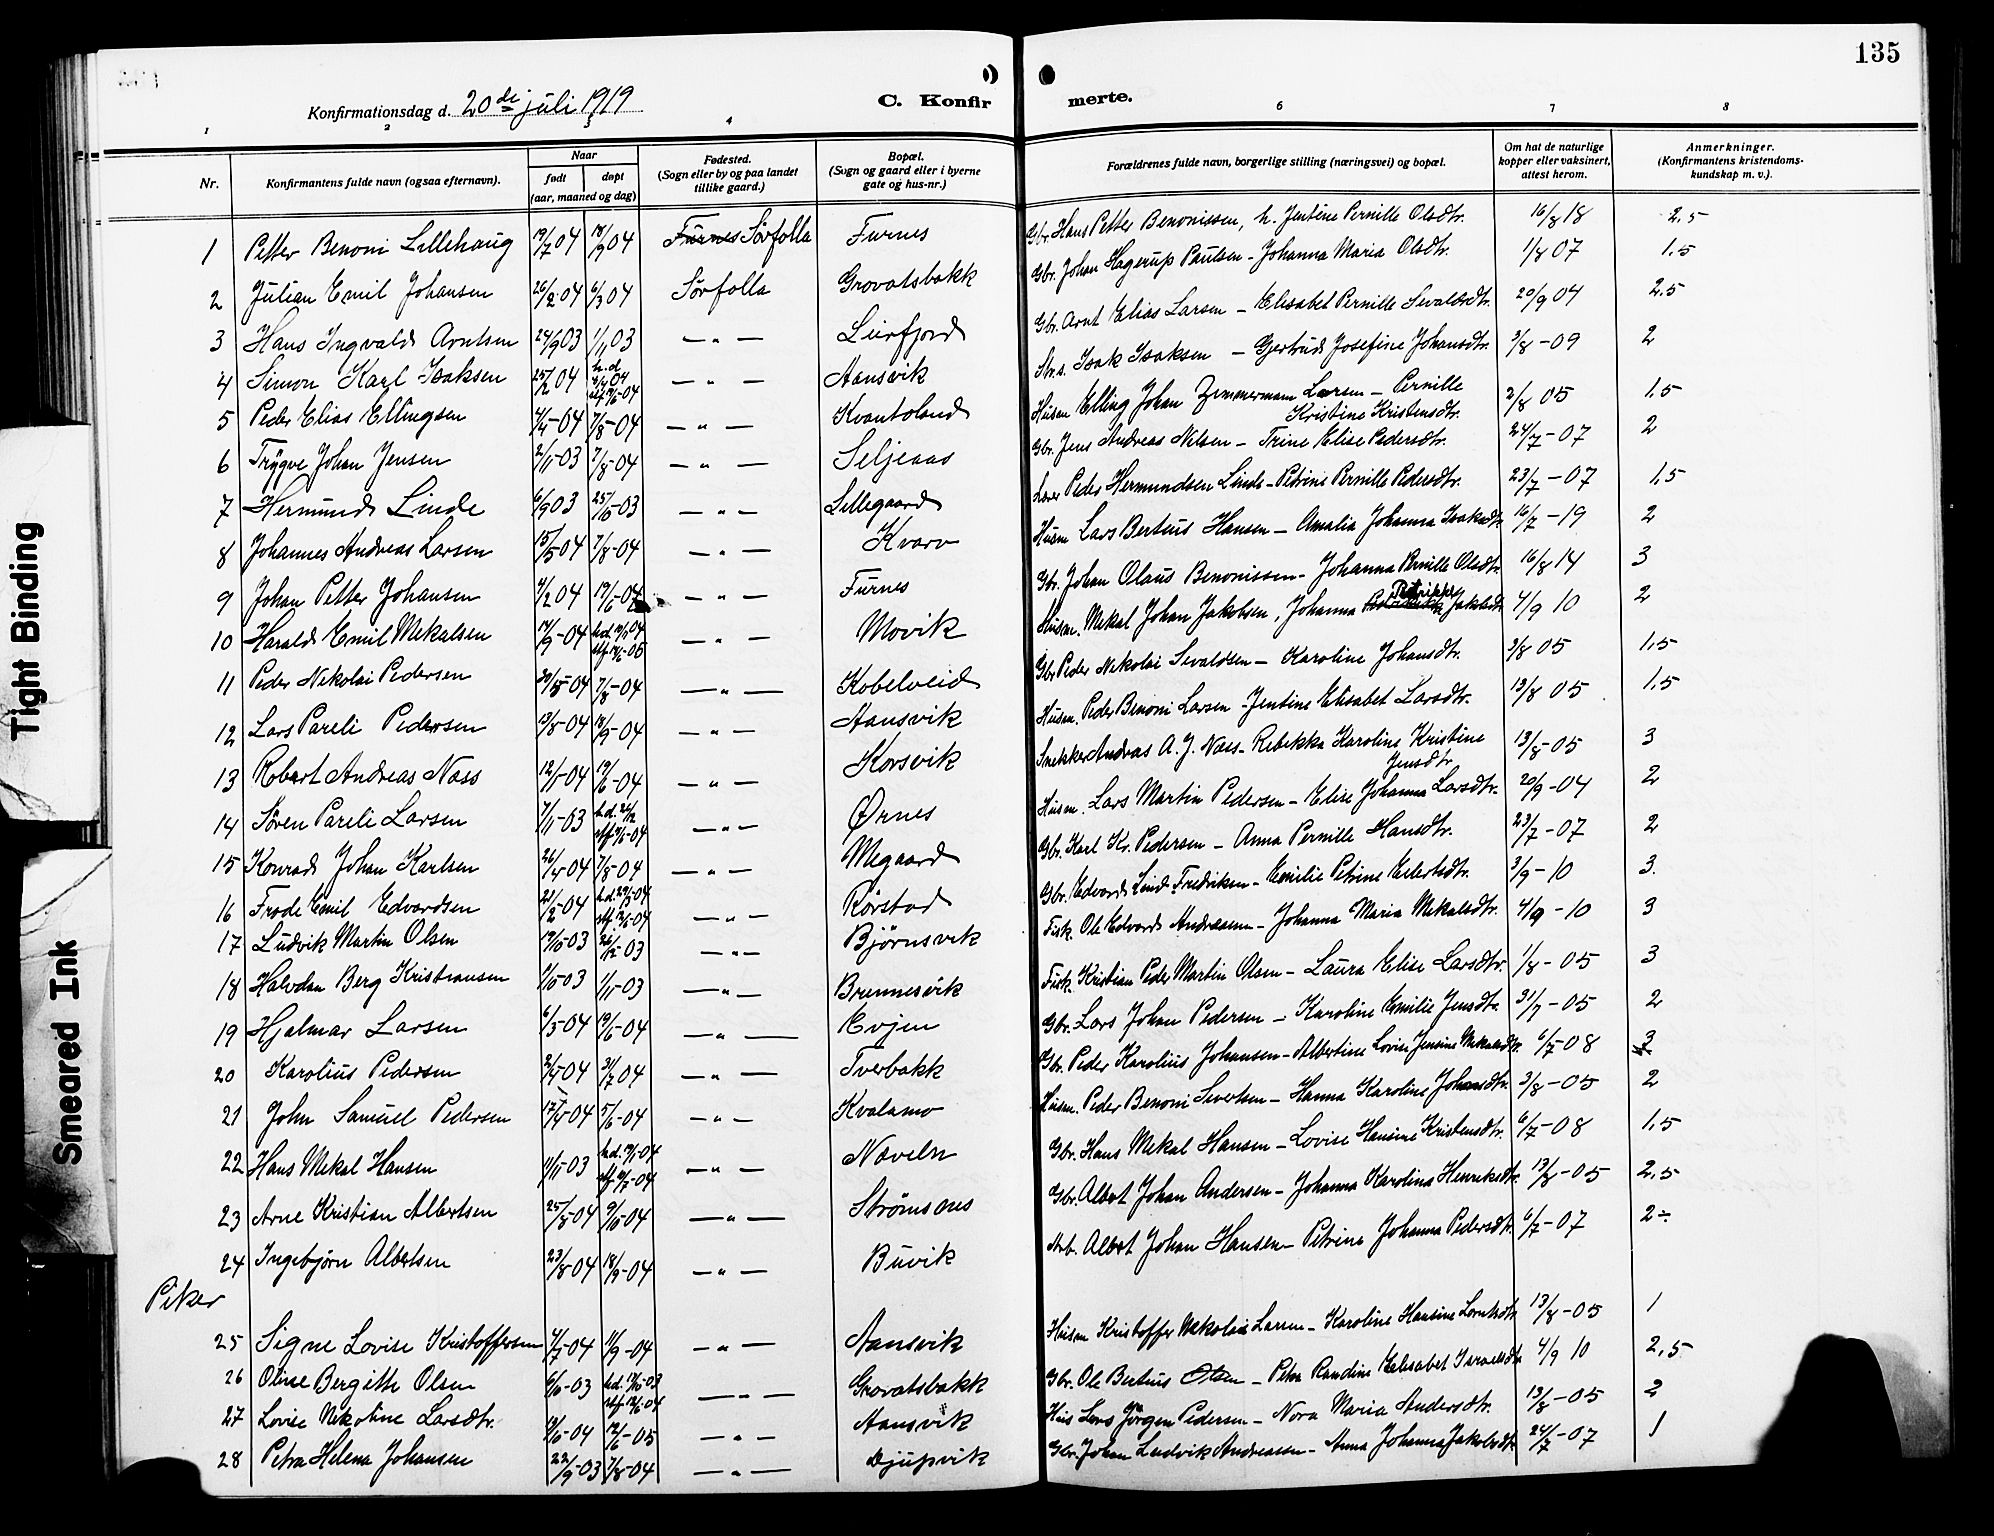 135
Konfirmationsdag d. 20de juli 1919
C. Konfirmerte.
1 2 3 4 6 7 8
Nr. Konfirmantens fulde navn (ogsaa efternavn). Naar født døpt (aar, maaned og dag) Fødested. (Sogn eller by og paa landet tillike gaard.) Bopæl. (Sogn og gaard eller i byerne gate og hus-nr.) Forældrenes fulde navn, borgerlige stilling (næringsvei) og bopæl. Om hat de naturlige kopper eller vaksinert, attest herom. Anmerkninger. (Konfirmantens kristendomskundskap m. v.).
1 Petter Benoni Lillehaug 19/7 04 18/9 04 Furnes Sørfolla Furnes Gbr. Hans Petter Benonissen, h. Jentine Pernille Olsdtr. 16/8 18 2,5
2 Julian Emil Johansen 26/2 04 6/3 04 Sørfolla Grovatsbakk Gbr. Johan Hagerup Paulsen - Johanna Maria Olsdtr. 1/8 07 1,5
3 Hans Ingvald Arntsen 24/9 03 1/11 03 — " — Leirfjord Gbr. Arnt Elias Larsen - Elisabet Pernille Sevaldsdtr. 20/9 04 2,5
4 Simon Karl Isaksen 25/2 04 — " — Aansvik Isak Isaksen - Gjertrud Josefine Johansdtr. 3/8-09 2
5 Peder Elias Ellingsen 7/8-04 — " — Kvantoland Husm Elling Johan Zimmermann Larsen - Pernille Kristine Kristensdtr. 2/8 05 1,5
6 Trygve Johan Jensen 2/11-03 7/8-04 — " — Seljeaas Gbr. Jens Andreas Nilsen - Trine Elise Pedersdtr. 24/7-07 2
7 Hermund Linde 6/9 03 25/10-03 — " — Lillegaard Peder Hermundsen Linde - Petrine Pernille Pedersdtr. 23/7-07 1,5
8 Johannes Andreas Larsen 15/5 04 7/8-04 — " — Kvarv Husm Lars Bertius Hansen - Amalia Johanna Isaksdtr 16/7-19 2
9 Johan Petter Johansen 4/2 04 19/6-04 — " — Furnes Gbr. Johan Olaus Benonissen - Johanna Pernille Olsdtr. 16/8 14 3
10 Harald Emil Mekalsen 14/9-04 — " — Movik Husm. Mekal Johan Jakobsen, Johanna Petrikke Jakobsdtr 4/9 10 2
11 Peder Nikolai Pedersen 7/8-04 — " — Kobelveid Gbr Peder Nikolai Sevaldsen - Karoline Johansdtr. 3/8 05 1,5
12 Lars Pareli Pedersen 13/8-04 18/9-04 — " — Aansvik Husm. Peder Benoni Larsen - Jentine Elisabet Larsdtr. 13/8 05 1,5
13 Robert Andreas Næss 12/1-04 19/6-04 — " — Korsvik Snekker Andreas A. J. Næss - Rebekka Karoline Kristine Jensdtr 13/8-05 3
14 Søren Pareli Larsen 7/11-03 — " — Ørnes Husm. Lars Martin Pedersen - Elise Johanna Larsdtr. 20/9-04 2
15 Konrad Johan Karlsen 26/4-04 7/8-04 — " — Megaard Gbr. Karl Kr. Pedersen - Anna Pernille Hansdtr. 23/7-07 2
16 Frode Emil Edvardsen — " — Rørstad Gbr. Edvard Lind Fredriksen - Emilie Petrine Eilertsdtr. 3/9-10 3.
17 Ludvik Martin Olsen 19/10-03 26/12-03 — " — Bjørnsvik Fisk. Ole Edvard Andreasen - Johanna Maria Mekalsdtr. 4/9-10 3
18 Halvdan Berg Kristiansen 1/11-03 — " — Brennesvik Fisk. Kristian Peder Martin Olsen - Laura Elise Larsdtr. 1/8-05 3
19 Hjalmar Larsen 6/3-04 19/6-04 — " — Evjen Gbr. Lars Johan Pedersen - Karoline Emilie Jensdtr. 31/7-05 2
20 Karolius Pedersen 31/7 04 — " — Tverbakk Gbr. Peder Karolius Johansen - Albertine Lovise Jensine Mekalsdtr. 6/7-08 3
21 John Samuel Pedersen 17/4-04 5/6-04 — " — Kvalamo Husm. Peder Benoni Severtsen - Hanna Karoline Johansdtr. 3/8-05 2
22 Hans Mekal Hansen 11/11-03 — " — Naveln Gbr. Hans Mekal Hansen - Lovise Hansine Kristensdtr. 6/7-08 1,5
23 Arne Kristian Albertsen 25/8-04 9/10-04 — " — Strømsnes Gbr. Albert Johan Andersen - Johanna Karolina Henriksdtr. 13/8-05 2,5
24 Ingebjørn Albertsen 23/8-04 18/9-04 — " — Buvik Arb. Albert Johan Hansen - Petrina Johanna Pedersdtr. 6/7-07 2÷
Piker
25 Signe Lovise Kristoffersen 4/7-04 11/9-04 — " — Aansvik Husm Kristoffer Nikolai Larsen - Karoline Hansine Lorntsdtr 13/8-05 1
26 Oline Bergitte Olsen 6/10-03 — " — Grovatsbakk Gbr. Ole Bertius Olsen - Petra Randine Elisabet Israelsdtr 4/9 10 2,5
27 Lovise Nikoline Larsdtr. 12/6-05 — " — Aansvik Hus Lars Jørgen Pedersen - Nora Maria Andersdtr. 13/8-05 2
28 Petra Helena Johansen 22/9-03 7/8-04 — " — Djupvik Gbr. Johan Ludvik Andreassen - Anna Johanna Jakobsdtr. 24/7-07 1
Tight Binding
Smeared Ink